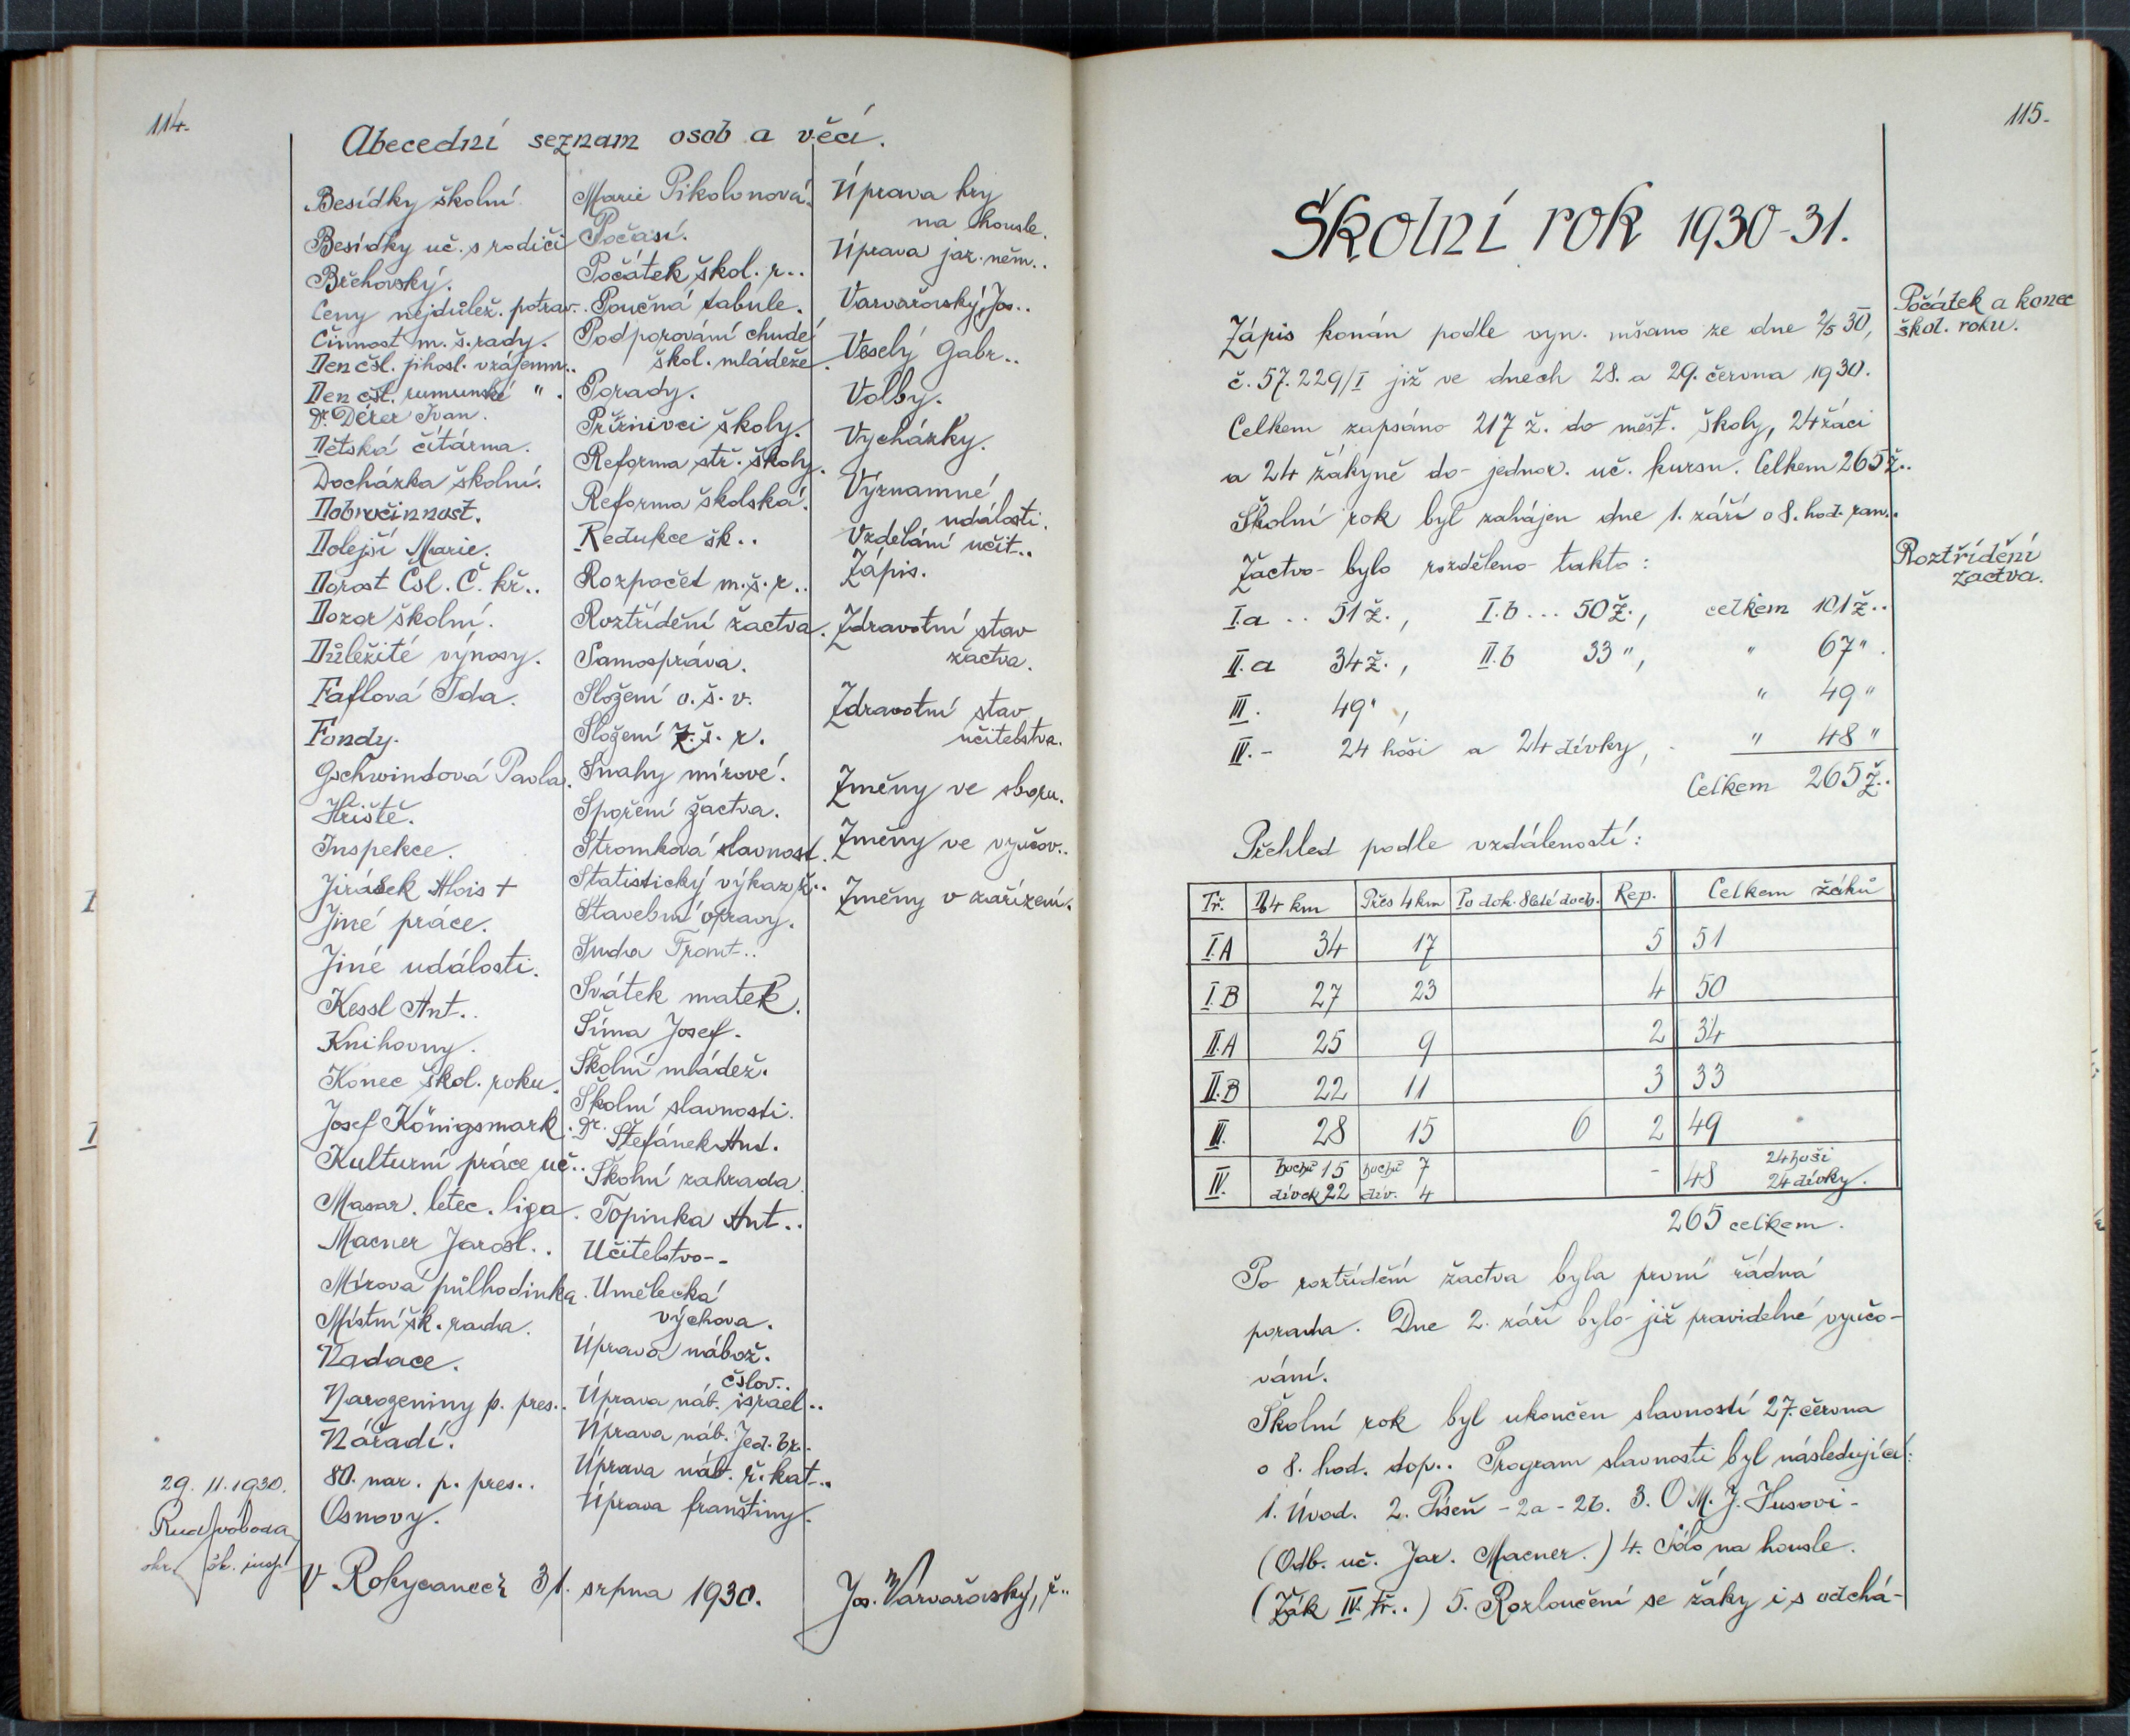 114.
Abecední seznam osob a věcí.
Besídky školní.
Besídky uč. s rodiči
Břehovský.
Ceny nejdůlež. potrav..
Činnost m. š. rady.
Den čsl. jihosl. vzájemn..
Den čsl. rumunské " .
Dr. Dérer Ivan.
Dětská čítárna.
Docházka školní.
Dobročinnost.
Dolejší Marie.
Dorost Čsl. Č. kř..
Dozor školní.
Důležité výnosy.
Faflová Ida.
Fondy.
Gschwindová Pavla.
Hřiště.
Inspekce.
Jirásek Alois +
Jiné práce.
Jiné události.
Kessl Ant..
Knihovny.
Konec škol. roku.
Josef Königsmark.
Kulturní práce uč..
Masar. letec. liga.
Macner Jarosl..
Mírová půlhodinka.
Místní šk. rada.
Nadace.
Narozeniny p. pres..
Nářadí.
80. nar. p. pres..
Osnovy.
Marie Pikolonová.
Počasí.
Počátek škol. r..
Poučná tabule.
Podporování chudé
škol. mládeže.
Porady.
Příznivci školy.
Reforma stř. školy.
Reforma školská.
Redukce šk..
Rozpočet m. š. r..
Roztřídění žactva.
Samospráva.
Složení o. š. v.
Složení ž. š. r.
Snahy mírové.
Spoření žactva.
Stromková slavnost.
Statistický výkaz ž..
Stavební opravy.
Suda Frant..
Svátek matek.
Šíma Josef.
Školní mládež.
Školní slavnosti.
Dr. Štefánek Ant.
Školní zahrada.
Topinka Ant..
Učitelstvo--
Umělecká
výchova.
Úprava nábož.
čslov..
Úprava náb. israel..
Úprava náb. Jed. br..
Úprava náb. ř. kat..
Úprava franštiny.
Úprava hry
na housle.
Úprava jaz. něm..
Varvařovský Jos..
Veselý Gabr..
Volby.
Vycházky.
Významné
události.
Vzdělání učit..
Zápis.
Zdravotní stav
žactva.
Zdravotní stav
učitelstva.
Změny ve sboru.
Změny ve vyučov..
Změny v zařízení.
29. 11. 1930.
Rud. Svoboda
okr. šk. insp.
V Rokycanech 31. srpna 1930.
Jos. Varvařovský, ř..
115.
Školní rok 1930-31.
Počátek a konec
škol. roku.
Zápis konán podle vyn. mšano ze dne 2/5 30,
č. 57.229/I již ve dnech 28. a 29. června 1930.
Celkem zapsáno 217 ž. do měšť. školy, 24 žáci
a 24 žákyně do jednor. uč. kursu. Celkem 265 ž..
Školní rok byl zahájen dne 1. září o 8. hod. ran..
Roztřídění
žactva.
Žactvo bylo rozděleno takto:
I.a .. 51 ž., I.b ... 50 ž., celkem 101 ž..
II.a 34 ž., II.b 33 ", " 67 ".
III. 49 ", " 49 "
IV.- 24 hoši a 24 dívky, " 48 "
Celkem 265 ž..
Přehled podle vzdáleností:
Tř. Do 4 km Přes 4 km Po dok. 8leté doch. Rep. Celkem žáků
I.A 34 17 5 51
I.B 27 23 4 50
II.A 25 9 2 34
II.B 22 11 3 33
III. 28 15 6 2 49
IV. hochů 15 hochů 7 - 48 24 hoši
dívek 22 dív. 4 24 dívky.
265 celkem.
Po roztřídění žactva byla první řádná
porada. Dne 2. září bylo již pravidelné vyučo-
vání.
Školní rok byl ukončen slavností 27. června
o 8. hod. dop.. Program slavnosti byl následující:
1. Úvod. 2. Píseň - 2a - 2b. 3. O M. J. Husovi-
(Odb. uč. Jar. Macner.) 4. Sólo na housle.
(Žák IV. tř..) 5. Rozloučení se žáky i s odchá-